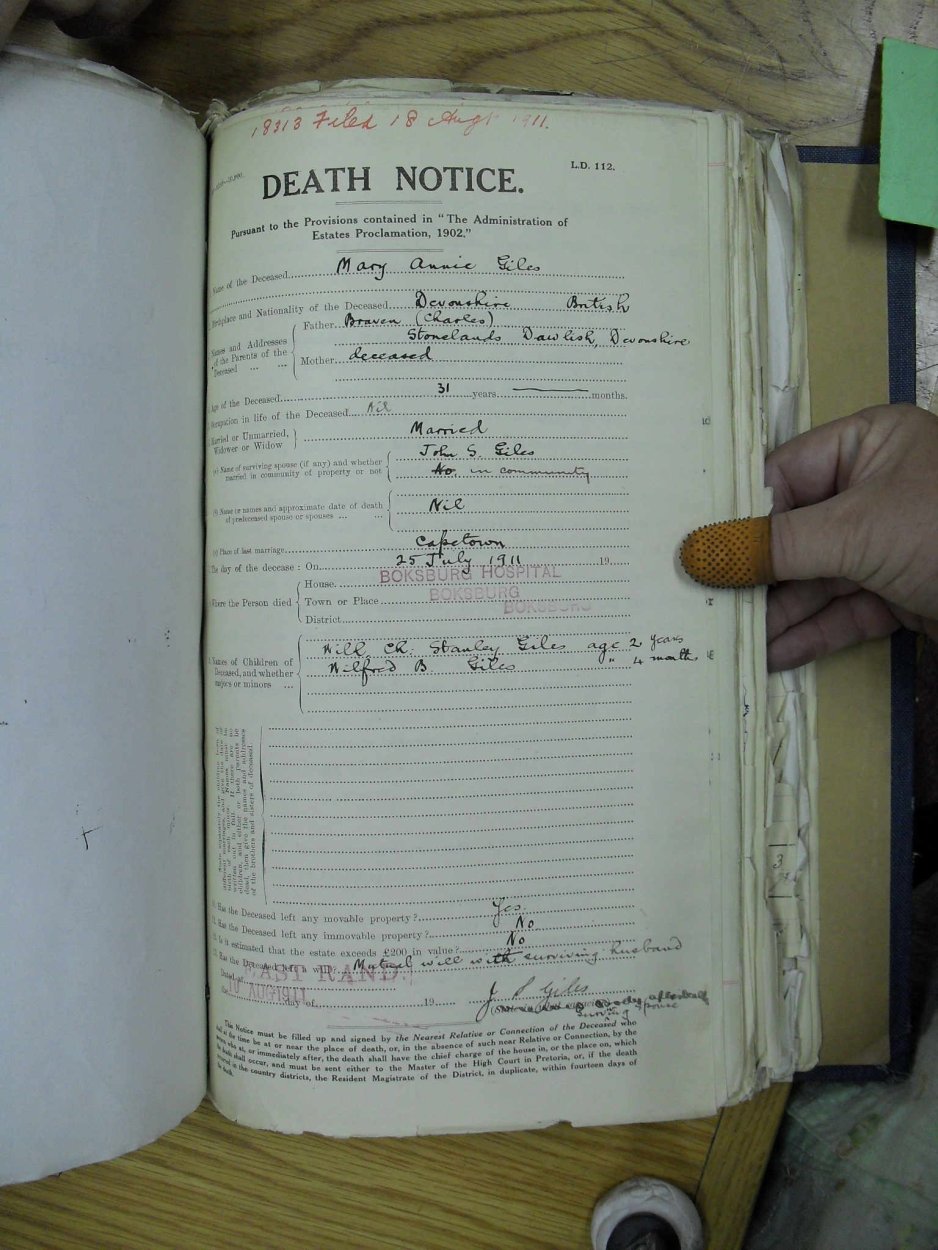 18313 Filed 18 Augt 1911.
L.D. 112.
DEATH NOTICE.
Pursuant to the Provisions contained in “The Administration of
Estates Proclamation, 1902.”
Name of the Deceased Mary Annie Giles
Birthplace and Nationality of the Deceased Devonshire British
Names and Addresses of the Parents of the Deceased
Father Braven (Charles)
Stonelands Dawlish, Devonshire
Mother deceased
Age of the Deceased 31 years months.
Occupation in life of the Deceased Nil
Married or Unmarried, Widower or Widow Married
(a) Name of surviving spouse (if any) and whether John S. Giles
married in community of property or not No. in community
(b) Name or names and approximate date of death
of predeceased spouse or spouses Nil
(c) Place of last marriage Capetown
The day of the decease: On 25 July 1911 19
Where the Person died
House BOKSBURG HOSPITAL
Town or Place BOKSBURG
District BOKSBURG
Names of Children of
Deceased, and whether
majors or minors
Will. Ch. Stanley Giles age 2 years
Wilfred B Giles " 4 months
Has the Deceased left any movable property? Yes.
Has the Deceased left any immovable property? No
Is it estimated that the estate exceeds £200 in value? No
Has the Deceased left a will? Mutual will with surviving husband
EAST RAND
Dated at
AUG 1911
day of 19
J S Giles
surviving spouse
The Notice must be filled up and signed by the Nearest Relative or Connection of the Deceased who
shall at the time be at or near the place of death, or, in the absence of such near Relative or Connection, by the
person who at, or immediately after, the death shall have the chief charge of the house in, or the place on, which
the death shall occur, and must be sent either to the Master of the High Court in Pretoria, or, if the death
occurred in the country districts, the Resident Magistrate of the District, in duplicate, within fourteen days of
the death.